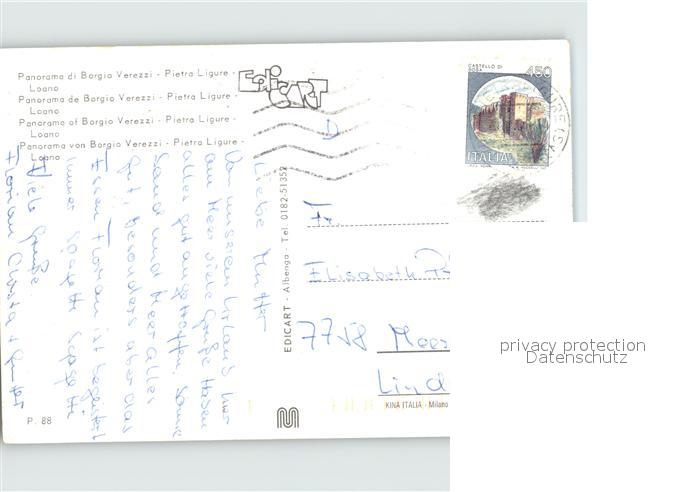 Panorama di Borgio Verezzi - Pietra Ligure -
Loano
Panorama de Borgio Verezzi - Pietra Ligure -
Loano
Panorama of Borgio Verezzi - Pietra Ligure -
Loano
Panorama von Borgio Verezzi - Pietra Ligure -
Loano
EdiCART
CASTELLO DI
450
ITALIA
D
Liebe Mutter
Von unserem Urlaub hier
am Meer viele Grüße Haben
alles gut angetroffen, Sonne
Sand und Meer alles
gut, besonders aber das
Essen Florian ist begeistert
immer Spagetti Spagetti
Viele Grüße
Florian + Günter
EDICART - Albenga - Tel. 0182-51352
Fr.
Elisabeth
7758 Meers
Lind
KINA ITALIA - Milano
P. 88
privacy protection
Datenschutz